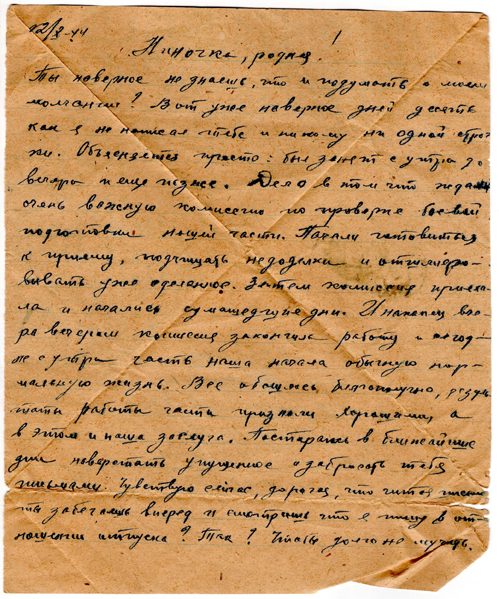 12/X-44
Ниночка, родная!
Ты наверное не знаешь, что и подумать о моем
молчании? Вот уже наверное дней десять
как я не написал тебе и никому ни одной строч-
ки. Объясняется просто: был занят с утра до
вечера и еще позже. Дело в том что ждали
очень важную комиссию по проверке боевой
подготовки нашей части. Начали готовиться
к приему, подчищать недоделки и отшлифо-
вывать уже сделанное. Затем комиссия приеха-
ла и начались сумасшедшие дни. И наконец вче-
ра вечером комиссия закончила работу и сегод-
ня с утра часть наша начала обычную нор-
мальную жизнь. Все обошлось благополучно, резуль
таты работы части признали хорошими, а
в этом и наша заслуга. Постараюсь в ближайшие
дни наверстать упущенное и забросать тебя
письмами. Чувствую сейчас, дорогая, что читая письмо
ты забегаешь вперед и смотришь что я пишу в от-
ношении отпуска? Так? Чтобы долго не мучить